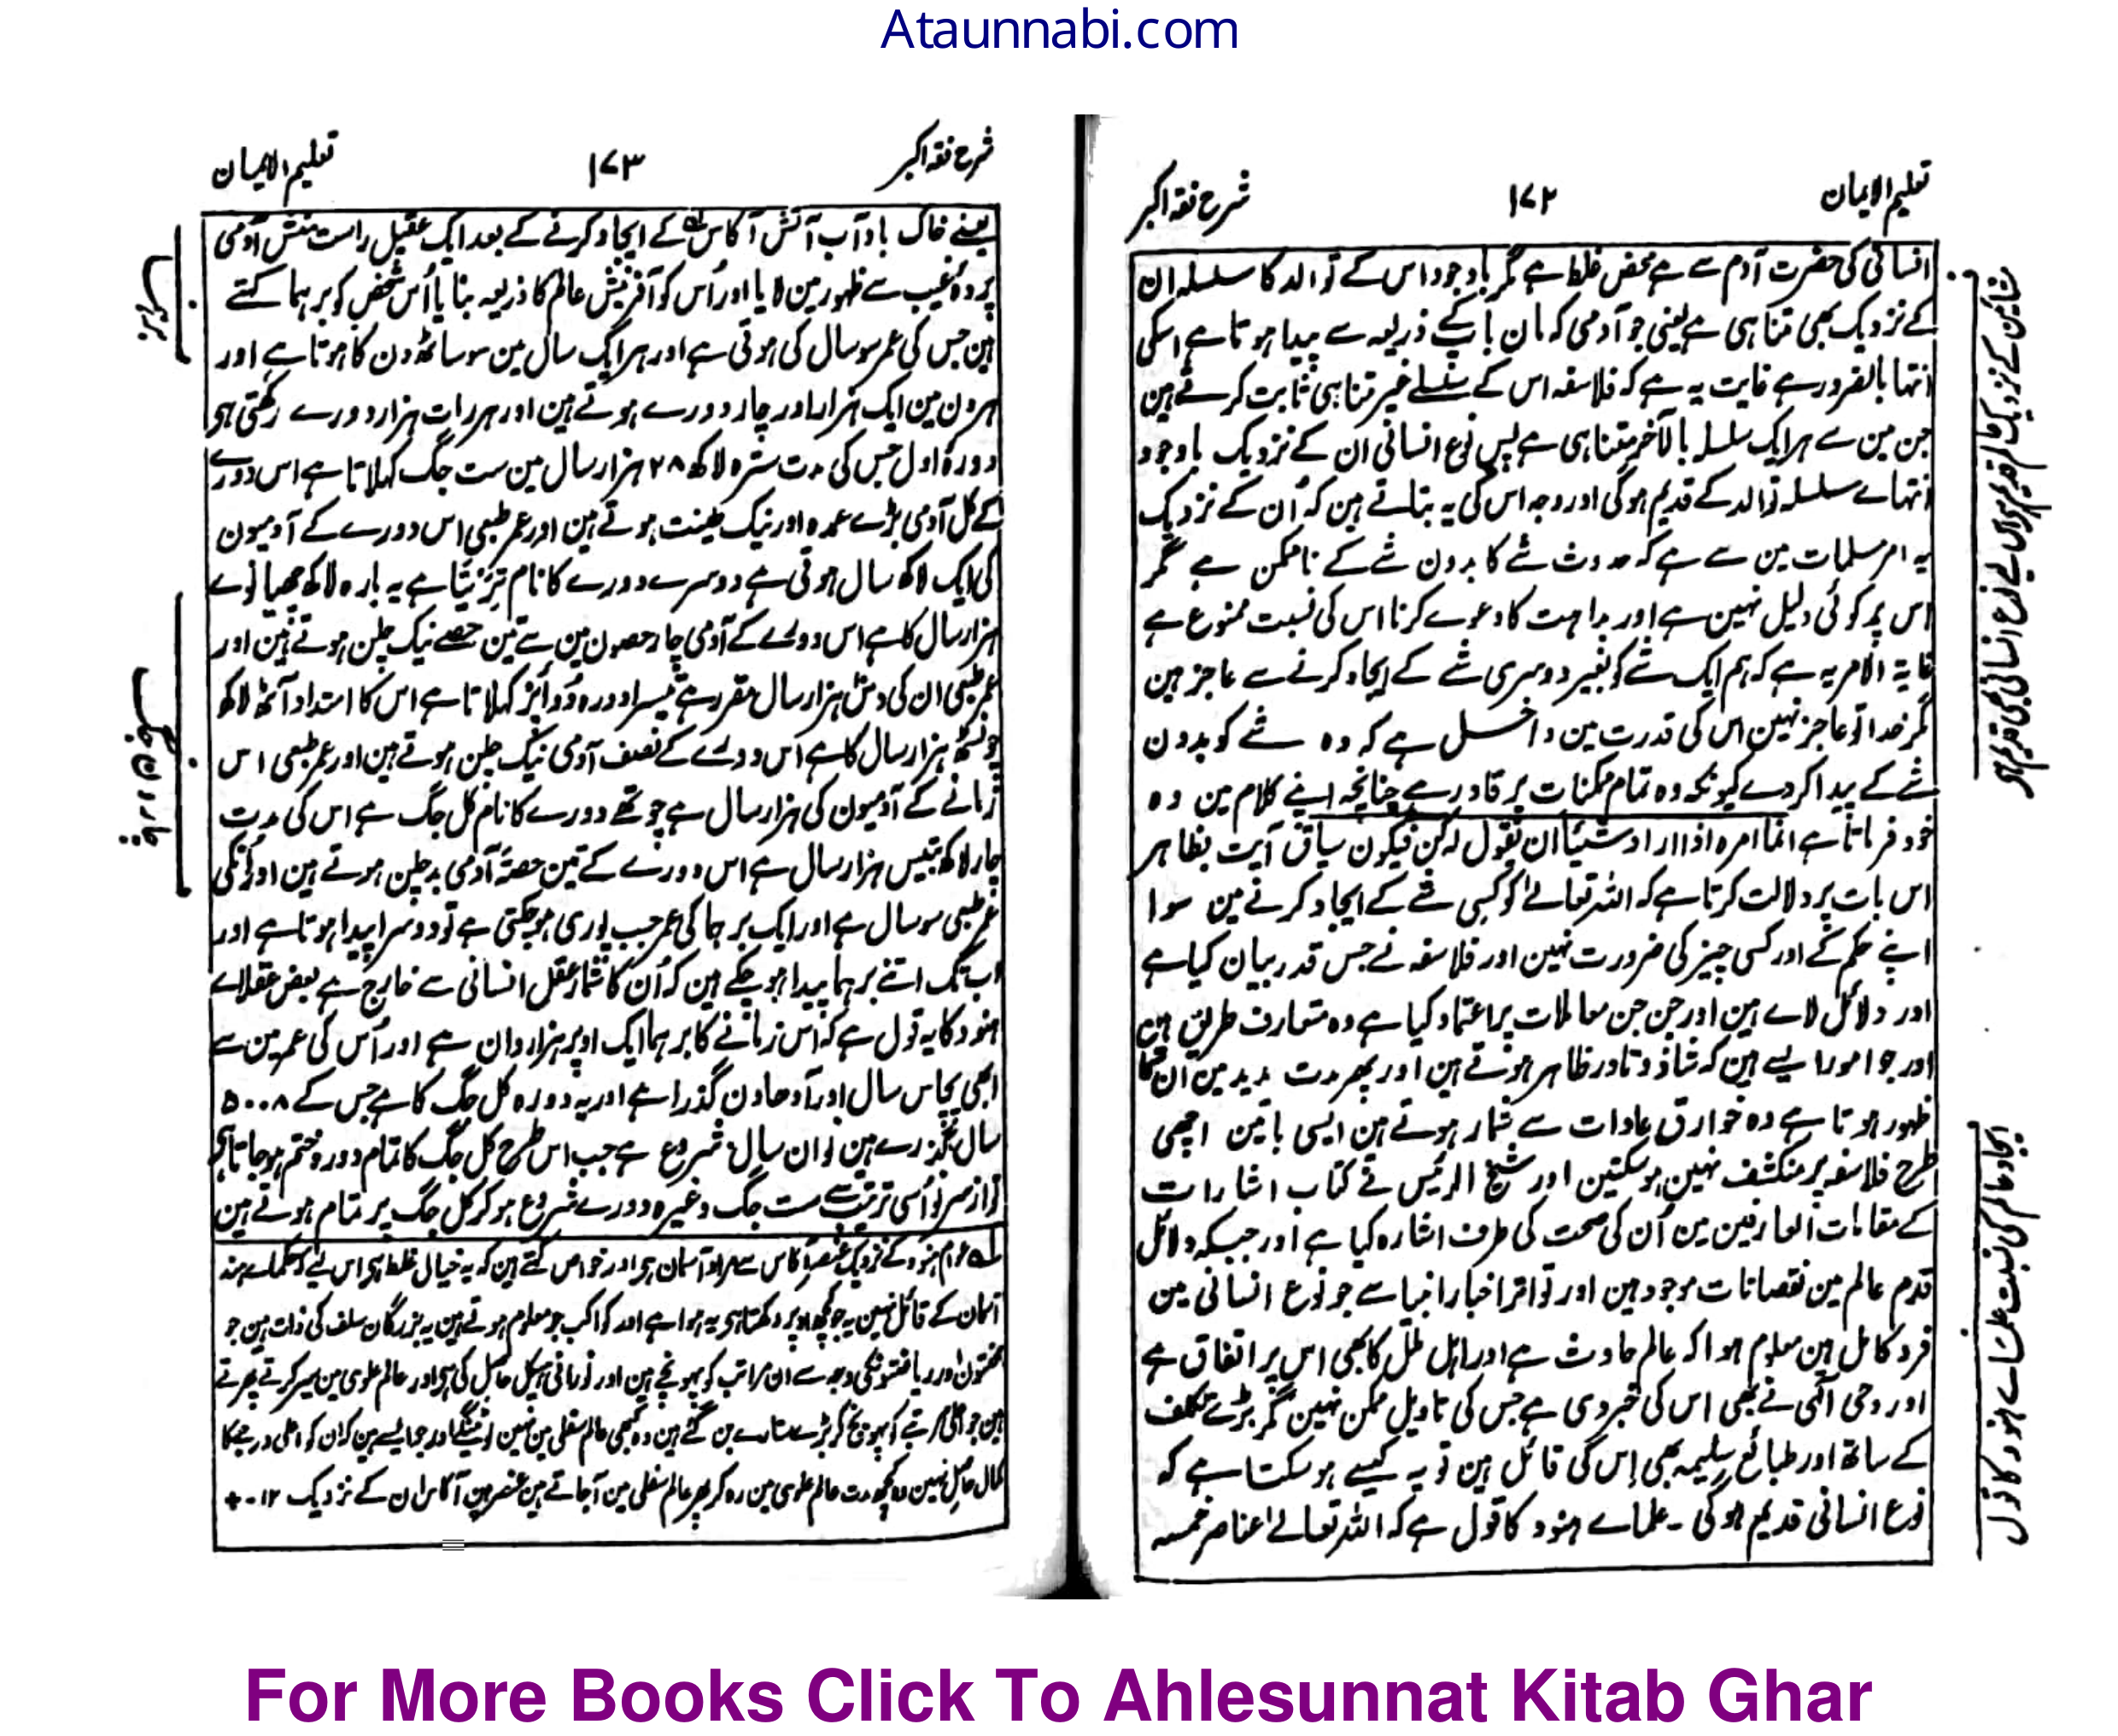 Ataunnabi.com
تعلیم الایمان
۱۷۲
شرح فقہ اکبر
انسانی کی حضرت آدم سے ہے محض غلط ہے مگر باوجود اس کے توالد کا سلسلہ ان
کے نزدیک بھی متناہی ہے یعنی جو آدمی کہ مان باپ کے ذریعہ سے پیدا ہوتا ہے اسکی
انتہا بالضرور ہے غایت یہ ہے کہ فلاسفہ اس کے سلسلے غیر متناہی ثابت کرتے ہین
جن مین سے ہر ایک سلسلہ بالآخر متناہی ہے پس نوع انسانی ان کے نزدیک باوجود
انتہاے سلسلہ توالد کے قدیم ہوگی اور وجہ اس کی یہ بتاتے ہین کہ اُن کے نزدیک
یہ امر مسلمات مین سے ہے کہ حدوث شے کا بدون شے کے ناممکن ہے مگر
اس پر کوئی دلیل نہین ہے اور بداہت کا دعوے کرنا اس کی نسبت ممنوع ہے
غایۃ الامر یہ ہے کہ ہم ایک شے کو بغیر دوسری شے کے ایجاد کرنے سے عاجز ہین
مگر خدا تو عاجز نہین اس کی قدرت مین داخل ہے کہ وہ شے کو بدون
شے کے پیدا کر دے کیونکہ وہ تمام ممکنات پر قادر ہے چنانچہ اپنے کلام مین وہ
خود فرماتا ہے انما امرہ اذا اراد شیئا ان یقول لہ کن فیکون سیاق آیت بظاہر
اس بات پر دلالت کرتا ہے کہ اللہ تعالےٰ کو کسی شے کے ایجاد کرنے مین سوا
اپنے حکم کے اور کسی چیز کی ضرورت نہین اور فلاسفہ نے جس قدر بیان کیا ہے
اور دلائل لاے ہین اور جن جن معاملات پر اعتماد کیا ہے وہ متعارف طریق ہین
اور جو امور ایسے ہین کہ شاذ و نادر ظاہر ہوتے ہین اور پھر مدت مدید مین ان کا
ظہور ہوتا ہے وہ خوارق عادات سے شمار ہوتے ہین ایسی باتین اچھی
طرح فلاسفہ پر منکشف نہین ہوسکتین اور شیخ الرئیس نے کتاب اشارات
کے مقامات العارفین مین اُن کی صحت کی طرف اشارہ کیا ہے اور جبکہ دلائل
قدم عالم مین نقصانات موجود ہین اور تواتر اخبار انبیا سے جو نوع انسانی مین
فرد کامل ہین معلوم ہوا کہ عالم حادث ہے اور اہل ملل کا بھی اس پر اتفاق ہے
اور وحی الٰہی نے بھی اس کی خبر دی ہے جس کی تاویل ممکن نہین مگر بڑے تکلف
کے ساتھ اور طبائع سلیمہ بھی اس کی قائل ہین تو یہ کیسے ہوسکتا ہے کہ
نوع انسانی قدیم ہوگی ۔ علماے ہنود کا قول ہے کہ اللہ تعالےٰ عناصر خمسہ
مشائین کے نزدیک عالم قدیم ہے اس لیے نوع انسانی بھی قدیم ہے
ایجاد عالم کی نسبت علماے ہنود کا قول
شرح فقہ اکبر
۱۷۳
تعلیم الایمان
یعنے خاک باد آب آتش آکاس کے ایجاد کرنے کے بعد ایک عقیل راست منش آدمی
پردۂ غیب سے ظہور مین لایا اور اُس کو آفرینش عالم کا ذریعہ بنایا اُس شخص کو برہما کہتے
ہین جس کی عمر سو سال کی ہوتی ہے اور ہر ایک سال مین سو ساٹھ دن کا ہوتا ہے اور
ہر دن مین ایک ہزار اور چار دورے ہوتے ہین اور ہر رات ہزار دورے رکھتی ہی
دورۂ اول جس کی مدت سترہ لاکھ ۲۸ ہزار سال مین ست جگ کہلاتا ہے اس دورے
کے کل آدمی بڑے عمدہ اور نیک طینت ہوتے ہین اور عمر طبعی اس دورے کے آدمیون
کی ایک لاکھ سال ہوتی ہے دوسرے دورے کا نام ترتیا ہے یہ بارہ لاکھ چھیانوے
ہزار سال کا ہے اس دورے کے آدمی چار حصون مین سے تین حصے نیک چلن ہوتے ہین اور
عمر طبعی ان کی دس ہزار سال مقرر ہے تیسرا دورہ دواپر کہلاتا ہے اس کا امتداد آٹھ لاکھ
چونسٹھ ہزار سال کا ہے اس دورے کے نصف آدمی نیک چلن ہوتے ہین اور عمر طبعی اس
زمانے کے آدمیون کی ہزار سال ہے چوتھے دورے کا نام کل جگ ہے اس کی مدت
چار لاکھ بتیس ہزار سال ہے اس دورے کے تین حصۂ آدمی بد چلن ہوتے ہین اور اُنکی
عمر طبعی سو سال ہے اور ایک برہما کی عمر جب پوری ہوچکتی ہے تو دوسرا پیدا ہوتا ہے اور
اب تک اتنے برہما پیدا ہوچکے ہین کہ اُن کا شمار عقل انسانی سے خارج ہے بعض عقلاے
ہنود کا یہ قول ہے کہ اس زمانے کا برہما ایک اوپر ہزاروان ہے اور اُس کی عمر مین سے
ابھی پچاس سال اور آدھا دن گذرا ہے اور یہ دورہ کل جگ کا ہے جس کے ۵۰۰۸
سال گذرے ہین نوان سال شروع ہے جب اس طرح کل جگ کا تمام دورہ ختم ہوجاتا ہی
تو از سر نو اُسی ترتیب سے ست جگ وغیرہ دورے شروع ہو کر کل جگ پر تمام ہوتے ہین
لہ عوام ہنود کے نزدیک عنصر آکاس سے مراد آسمان ہی اور خواص کہتے ہین کہ یہ خیال غلط ہی اس لیے کہ حکماے ہند
آسمان کے قائل نہین یہ جو کچھ اوپر دکھتا ہی یہ ہوا ہے اور کواکب جو معلوم ہوتے ہین یہ بزرگان سلف کی ذات ہین جو
محنتون اور ریاضتونکی وجہ سے ان مراتب کو پہونچے ہین اور نورانی ہیکل حاصل کی ہی اور عالم علوی مین سیر کرتے پھرتے
ہین جو اعلیٰ مرتبے کو پہونچ کر بڑے ستارے بن گئے ہین وہ کبھی عالم سفلی مین نہین لوٹینگے اور جو ایسے ہین کہ ان کو اعلی درجے کا
کمال حاصل نہین وہ کچھ مدت عالم علوی مین رہ کر پھر عالم سفلی مین آجاتے ہین عنصر مین آکاس ان کے نزدیک ۱۲
For More Books Click To Ahlesunnat Kitab Ghar